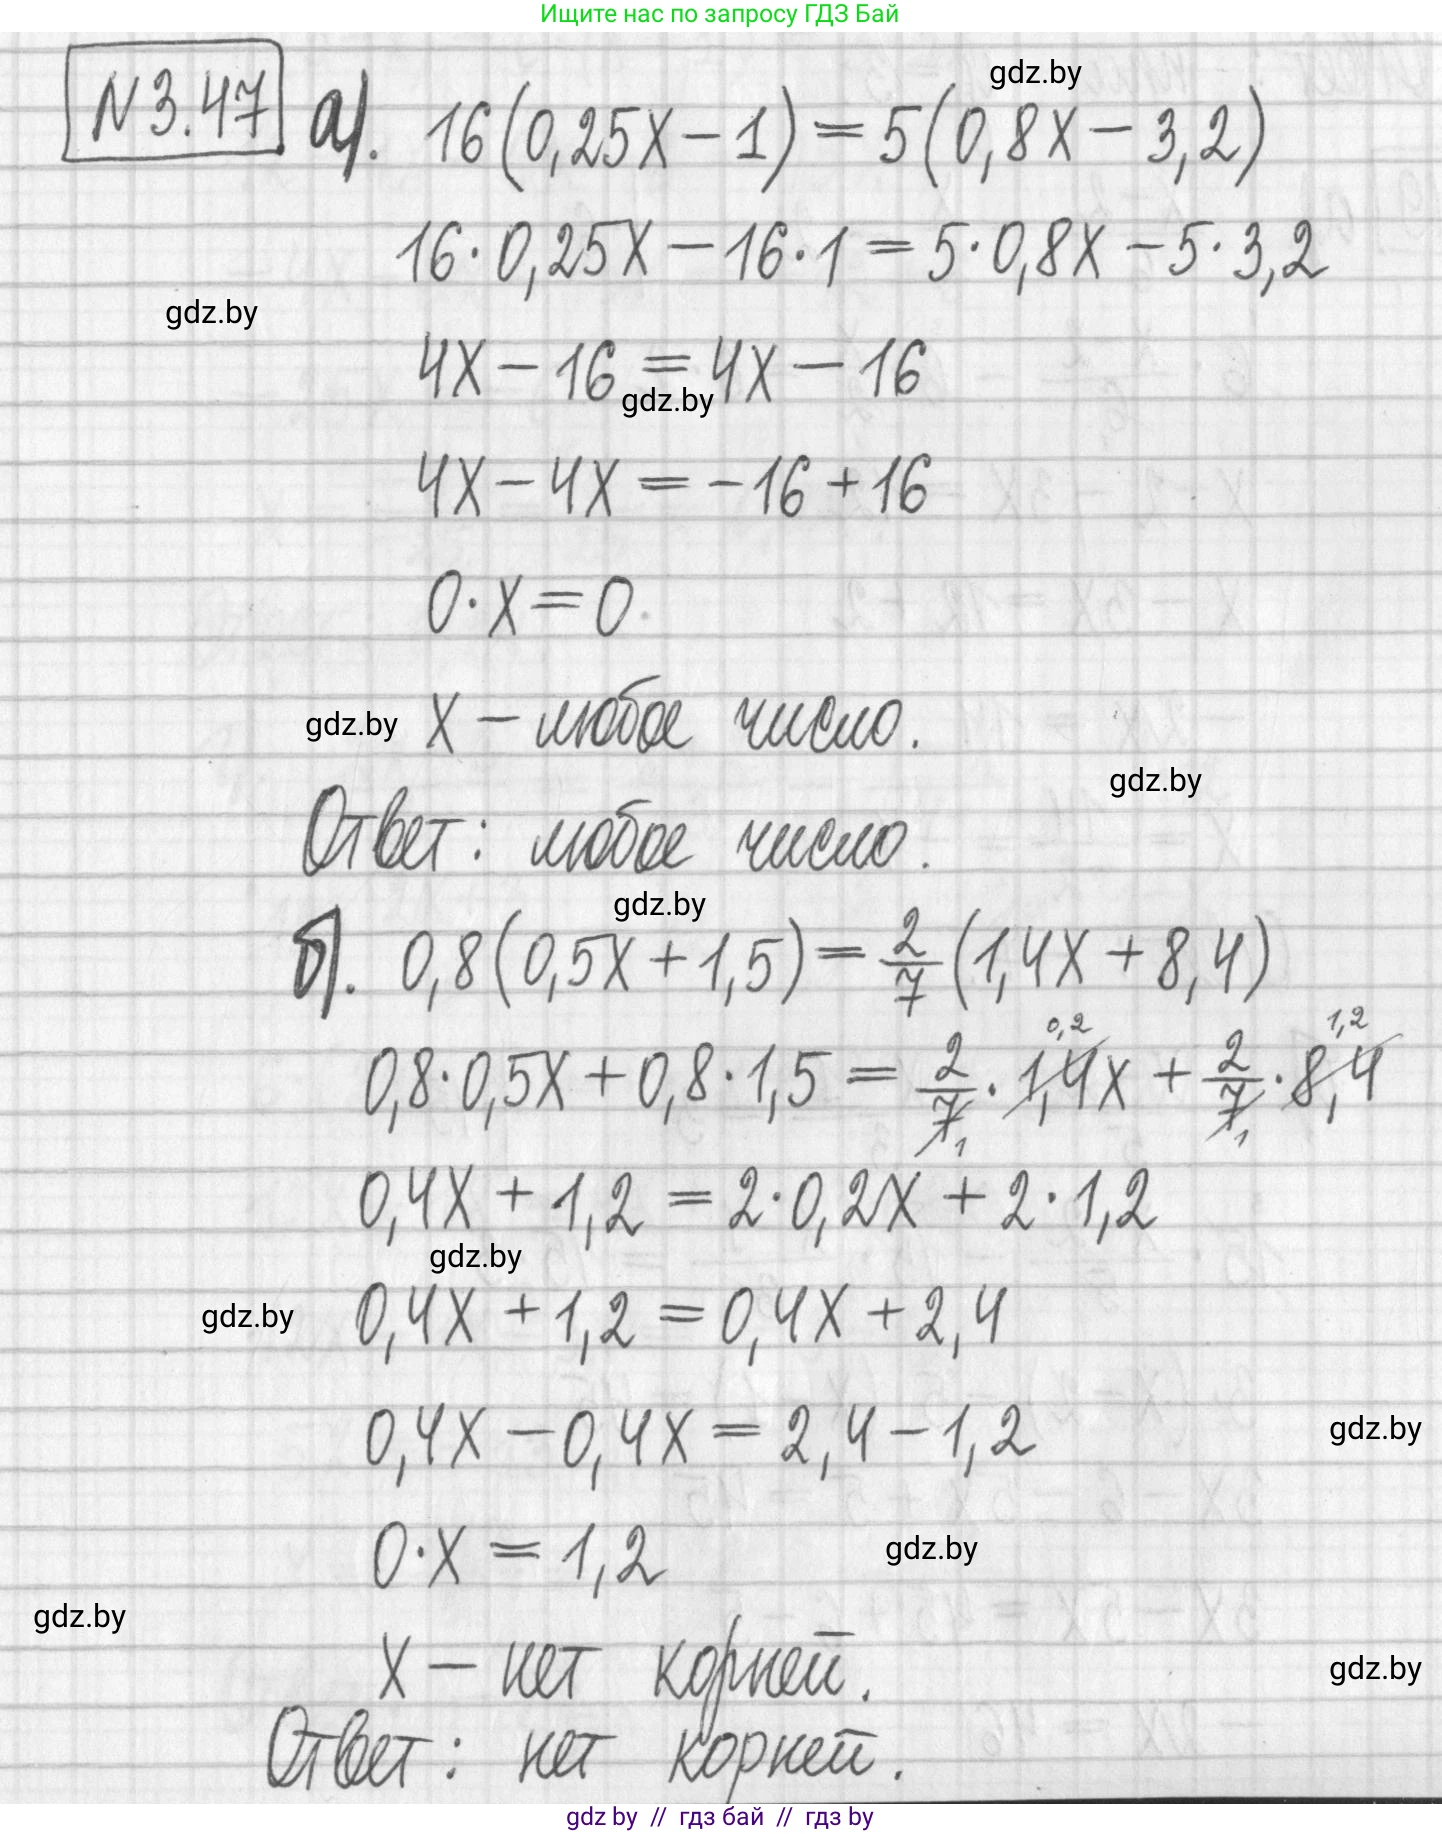 Ищите нас по запросу ГДЗ Бай
N 3.47 а). 16(0,25x − 1) = 5(0,8x − 3,2)
gdz.by
16·0,25x − 16·1 = 5·0,8x − 5·3,2
gdz.by
4x − 16 = 4x − 16
gdz.by
4x − 4x = −16 + 16
0·x = 0
gdz.by x − любое число.
gdz.by
Ответ: любое число.
gdz.by
б). 0,8(0,5x + 1,5) = 2/7 (1,4x + 8,4)
0,2 1,2
0,8·0,5x + 0,8·1,5 = 2/7 · 1,4x + 2/7 · 8,4
1 1
0,4x + 1,2 = 2·0,2x + 2·1,2
gdz.by
gdz.by 0,4x + 1,2 = 0,4x + 2,4
0,4x − 0,4x = 2,4 − 1,2 gdz.by
0·x = 1,2 gdz.by
gdz.by
x − нет корней. gdz.by
Ответ: нет корней.
gdz by // гдз бай // гдз by